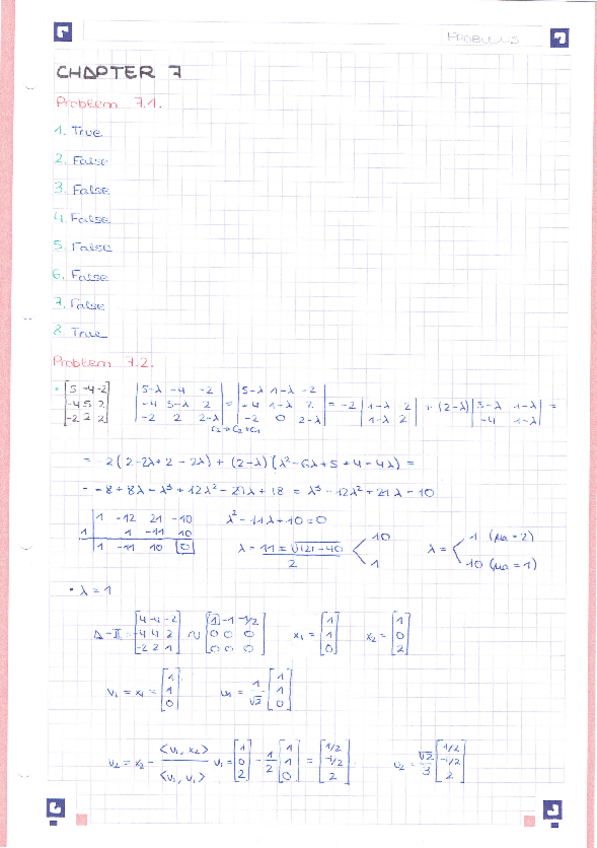 PROBLEMS
CHAPTER 7
Problem 7.1.
1. True
2. False
3. False
4. False
5. False
6. False
7. False
8. True
Problem 7.2.
• [5 -4 -2; -4 5 2; -2 2 2] |5-λ -4 -2; -4 5-λ 2; -2 2 2-λ| = |5-λ 1-λ -2; -4 1-λ 2; -2 0 2-λ| = -2 |1-λ -2; 1-λ 2| + (2-λ) |5-λ 1-λ; -4 1-λ| =
= -2(2-2λ+2-2λ) + (2-λ)(λ²-6λ+5+4-4λ) =
= -8+8λ-λ³+12λ²-21λ+18 = λ³-12λ²+21λ-10
1 -12 21 -10
1 1 -11 10
1 -11 10 0
λ²-11λ+10=0
λ = 11±√121-40 / 2 < 10, 1
λ = < 1 (ma=2), 10 (ma=1)
• λ = 1
A-I = [4 -4 -2; -4 4 2; -2 2 1] ~ [1 -1 -1/2; 0 0 0; 0 0 0] x₁ = [1; 1; 0] x₂ = [1; 0; 2]
v₁ = x₁ = [1; 1; 0] u₁ = 1/√2 [1; 1; 0]
v₂ = x₂ - <v₁, x₂> / <v₁, v₁> v₁ = [1; 0; 2] - 1/2 [1; 1; 0] = [1/2; -1/2; 2] u₂ = √2/3 [1/2; -1/2; 2]